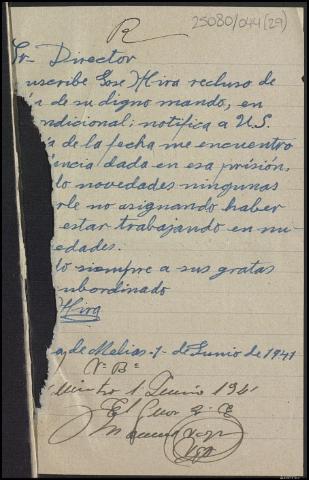 R
25080/044(29)
Sr Director
uscribe Jose Mira recluso de
de su digno mando, en
ndicional; notifica a U.S.
de la fecha me encuentro
encia dada en esa prisión.
do novedades ningunas
rle no asignando haber
estar trabajando en nu-
edades.
do siempre a sus gratas
subordinado
Mira
a de Melias-1- de Junio de 1941
V- B=
1 Junio 194
El